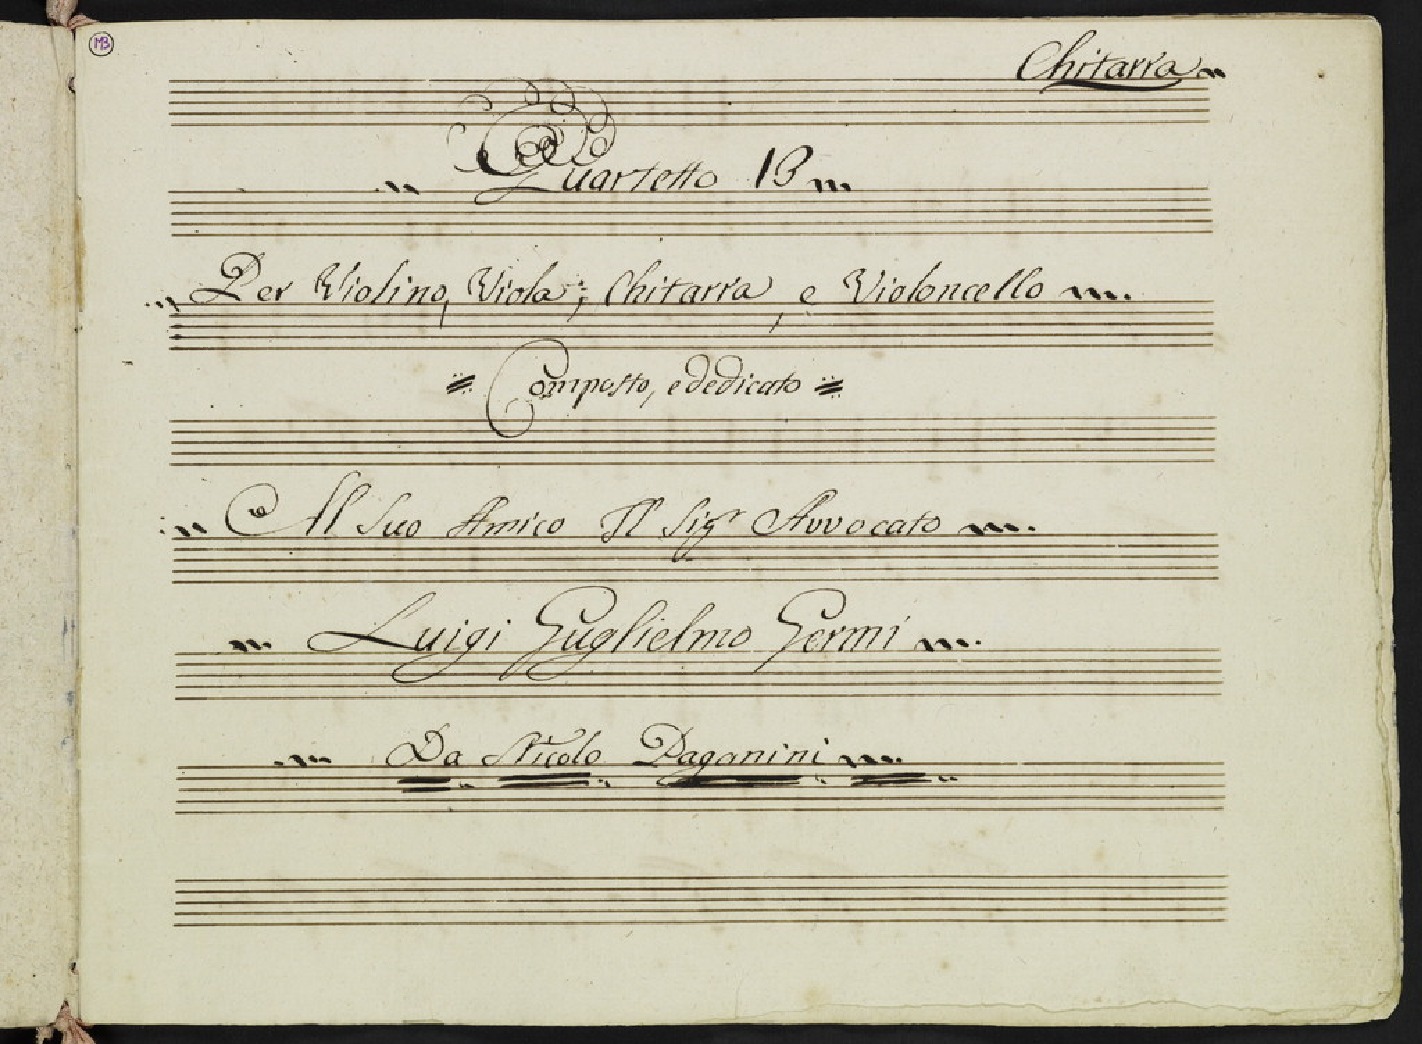 MB
Chitarra
Quartetto 13
Per Violino, Viola, Chitarra, e Violoncello
Composto, e dedicato
Al Suo Amico Il Sigr Avvocato
Luigi Guglielmo Germi
Da Nicolo Paganini